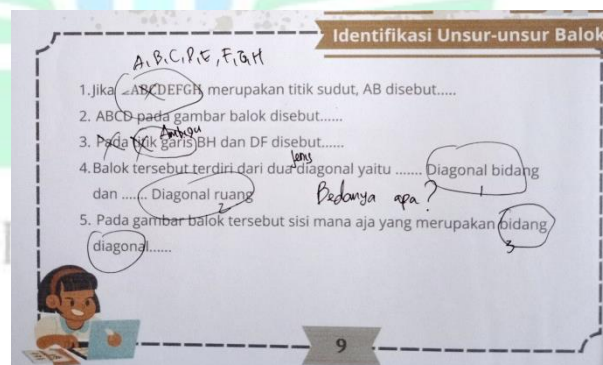 Identifikasi Unsur-unsur Balok
A, B, C, D, E, F, G, H
1.Jika ∠ABCDEFGH merupakan titik sudut, AB disebut.....
2. ABCD pada gambar balok disebut......
Ambigu
3. Pada titik garis BH dan DF disebut......
jenis
4.Balok tersebut terdiri dari dua diagonal yaitu ....... Diagonal bidang
1
dan ...... Diagonal ruang Bedanya apa?
2
5. Pada gambar balok tersebut sisi mana aja yang merupakan bidang
3
diagonal......
9